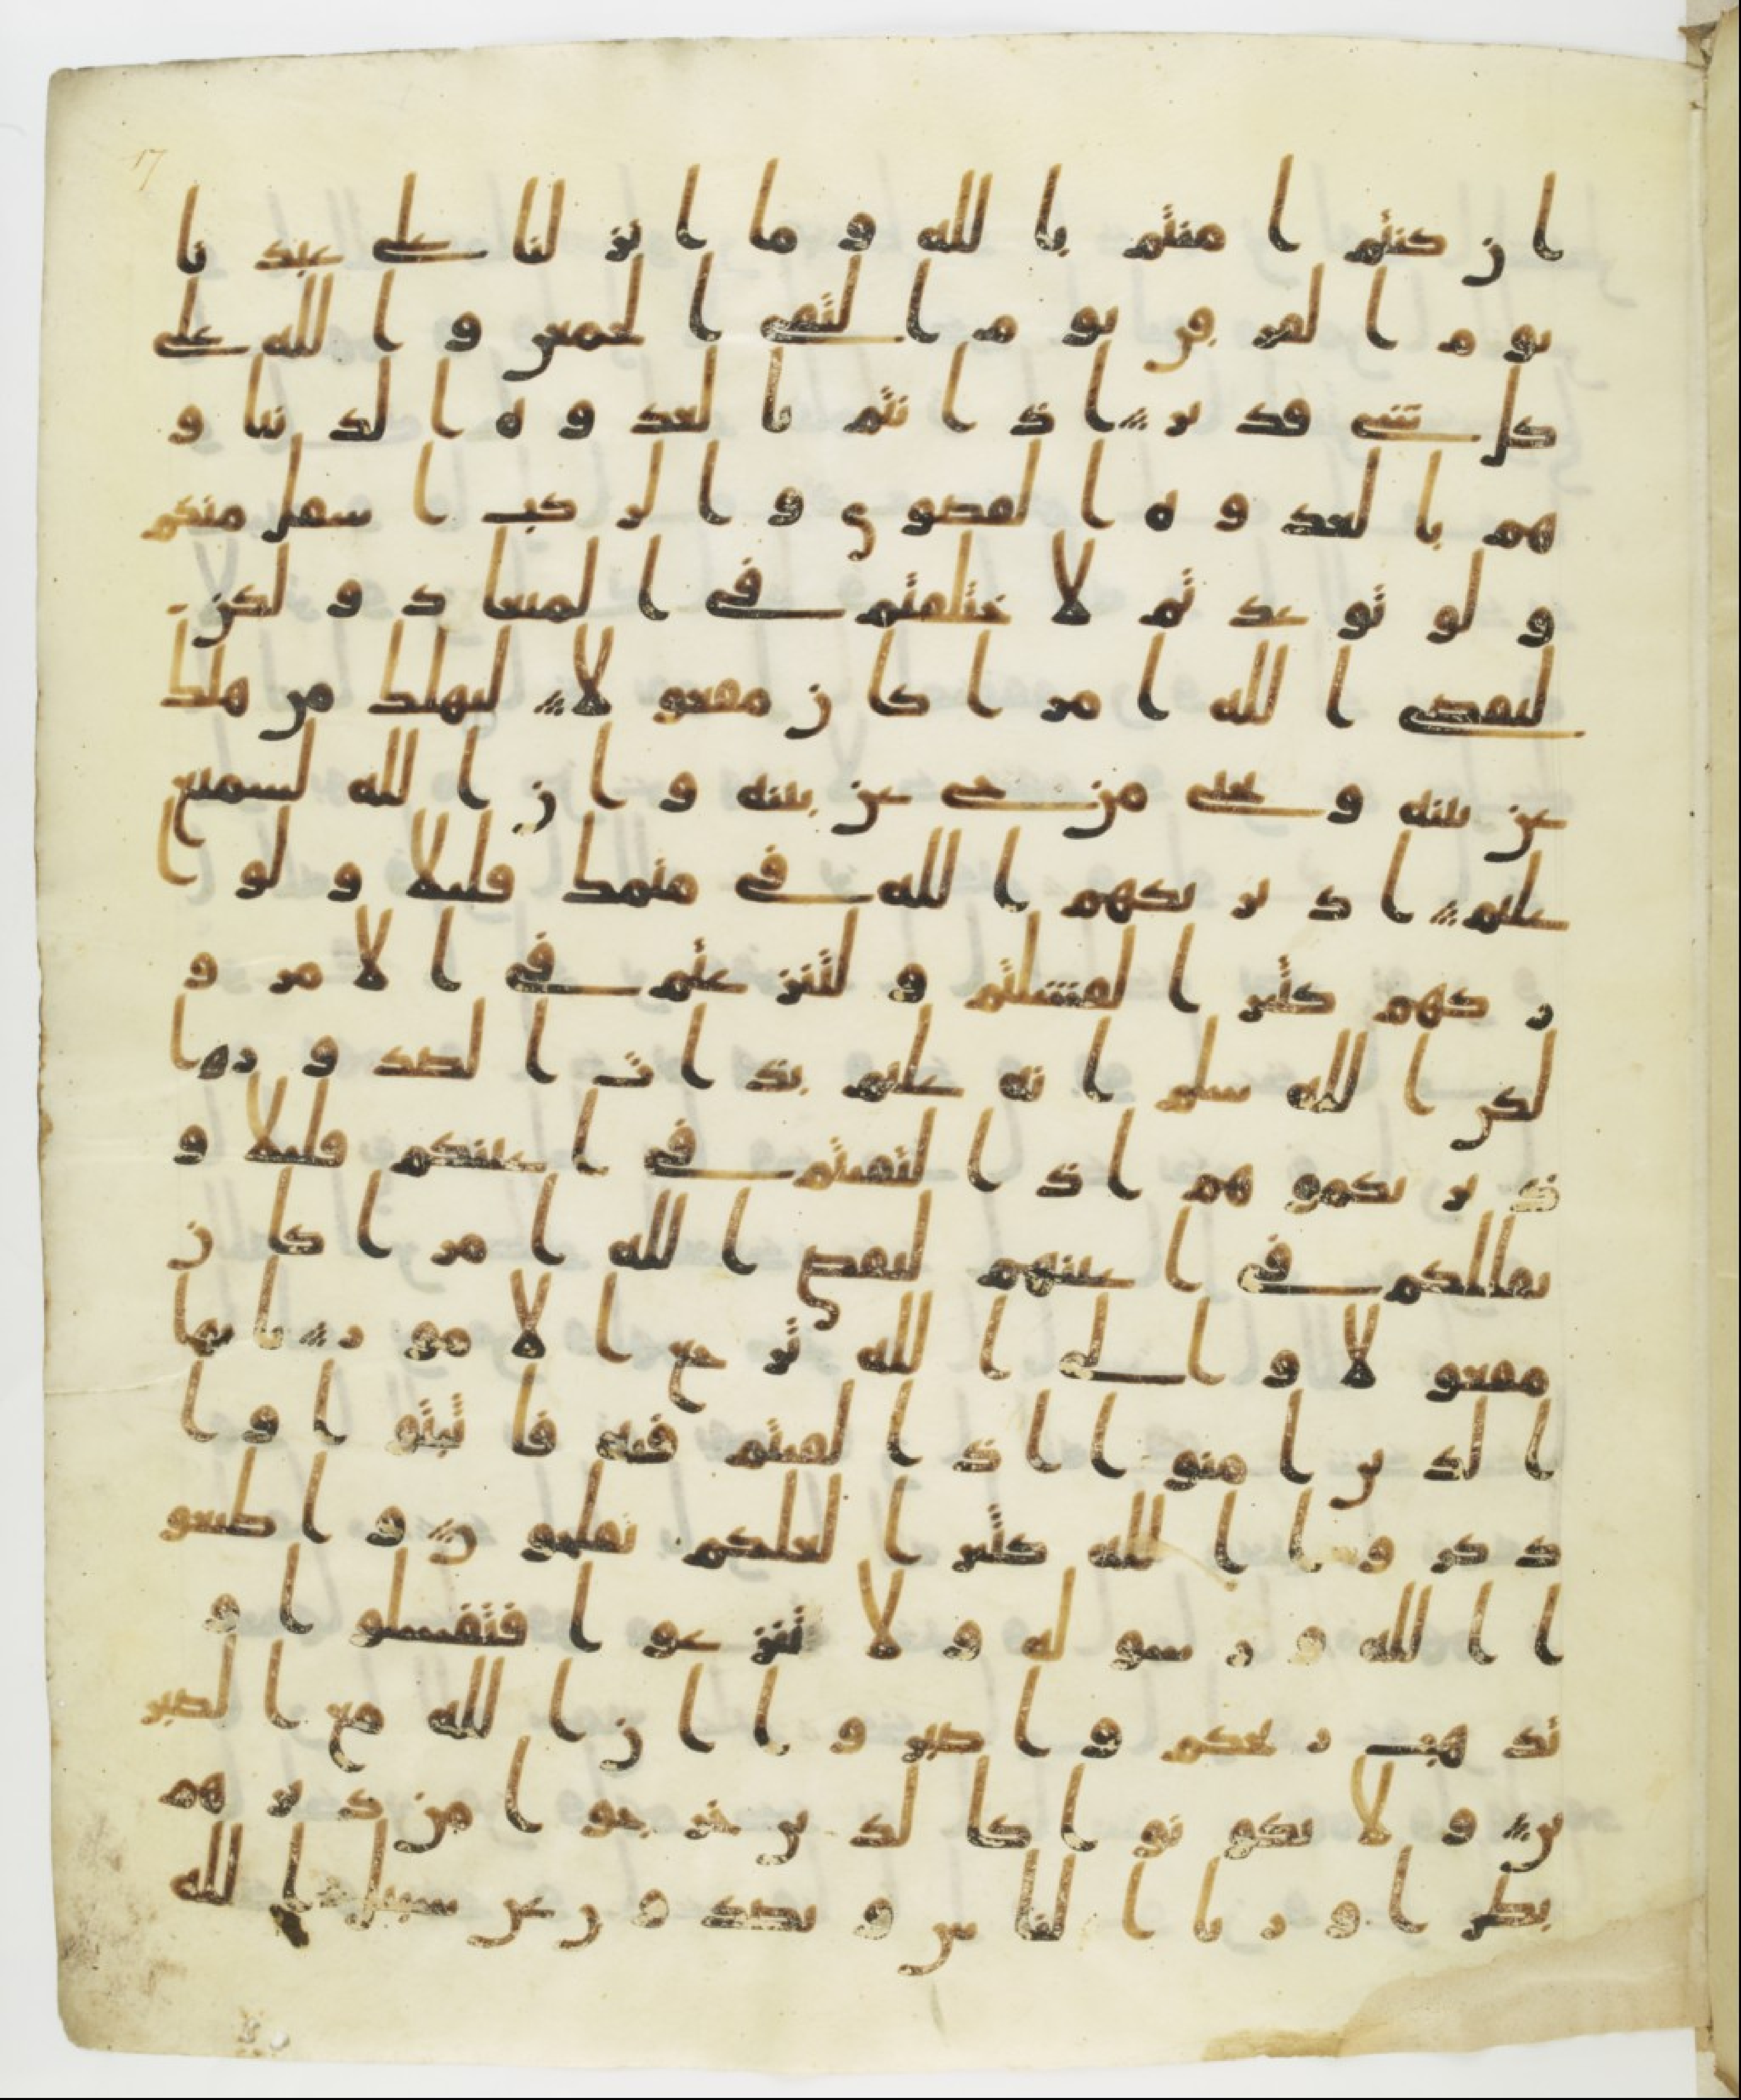 ان كنتم امنتم بالله وما انزلنا على عبدنا
يوم الفرقن يوم التقى الجمعن والله على
كل شى قدير اذ انتم بالعدوه الدنيا و
هم بالعدوه القصوى والركب اسفل منكم
ولو تواعدتم لاختلفتم فى الميعاد ولكن
ليقضى الله امرا كان مفعولا ليهلك من هلك
عن بينه ويحيى من حى عن بينه وان الله لسميع
عليم اذ يريكهم الله فى منمك قليلا ولو ا
ريكهم كثيرا لفشلتم ولتنزعتم فى الامر و
لكن الله سلم انه عليم بذات الصدور وا
ذ يريكموهم اذ التقيتم فى اعينكم قليلا و
يقللكم فى اعينهم ليقضى الله امرا كان
مفعولا والى الله ترجع الامور يايها
الذين امنوا اذا لقيتم فيه فاثبتوا وا
ذكروا الله كثيرا لعلكم تفلحون واطيعو
ا الله ورسوله ولا تنزعوا فتفشلوا و
تذهب ريحكم واصبروا ان الله مع الصبر
ين ولا تكونوا كالذين خرجوا من ديرهم
بطرا وريا الناس ويصدون عن سبيل الله